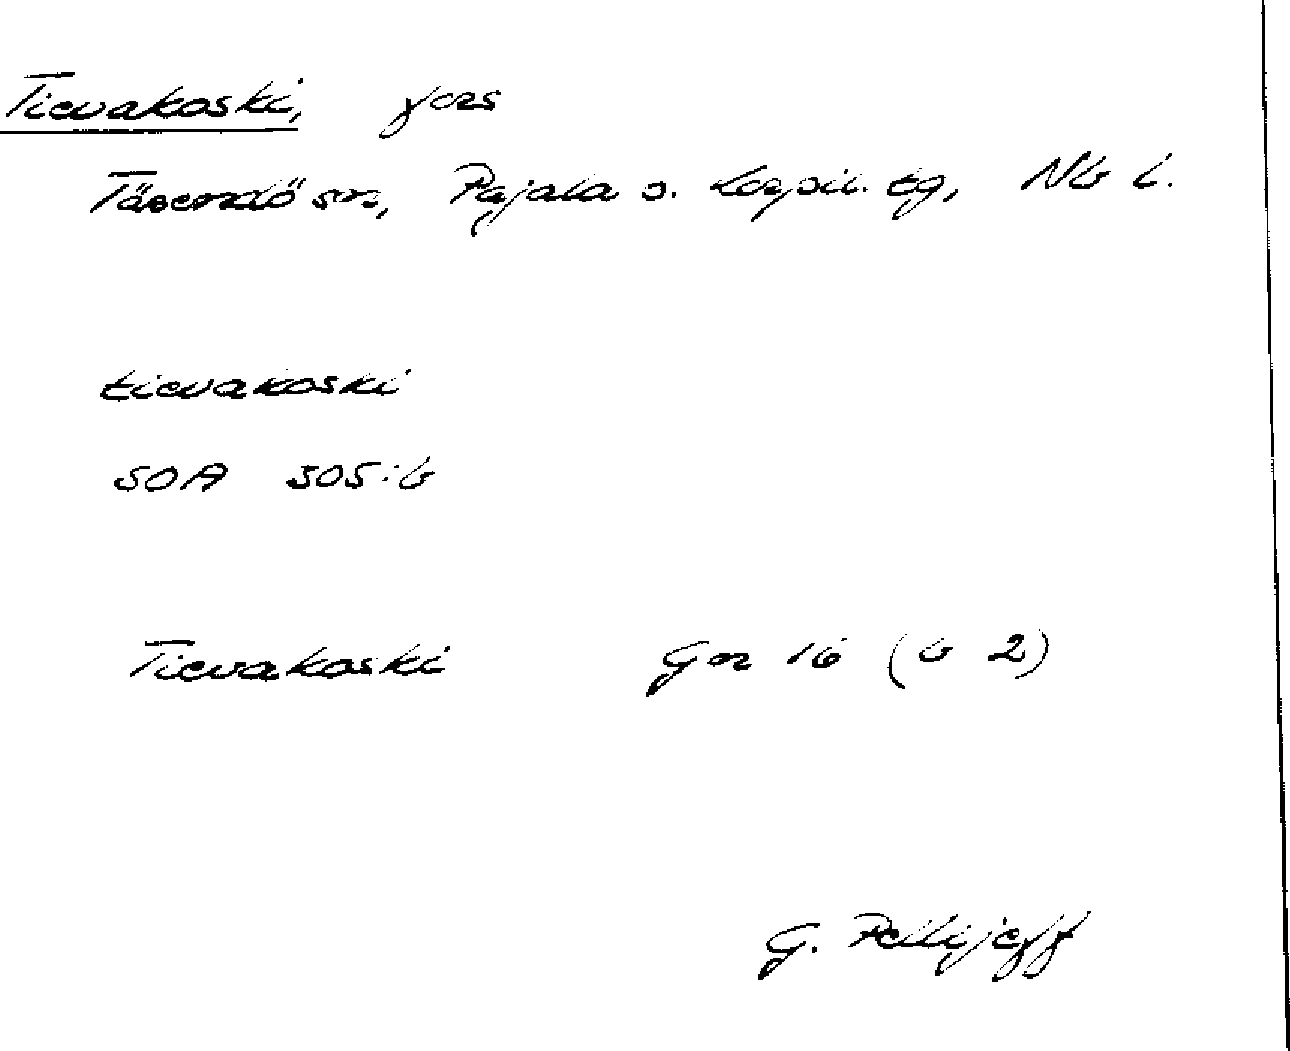 Tievakoski, fors
Tärendö sn, Pajala o. Korpil. tg, Nb l.
tievakoski
SOA 305:b
Tievakoski Gn 16 (b 2)
G. Pellijeff